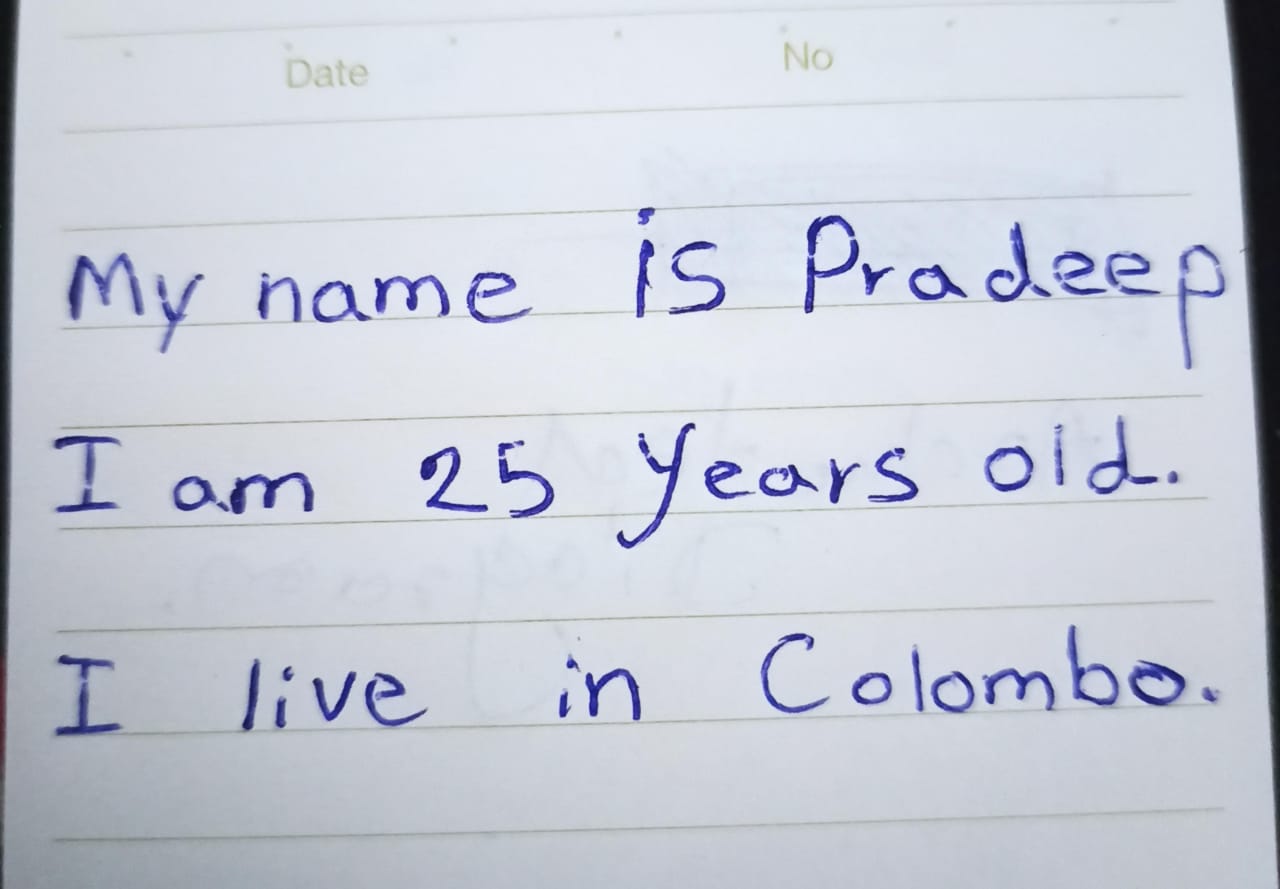 Date No
My name is Pradeep
I am 25 years old.
I live in Colombo.